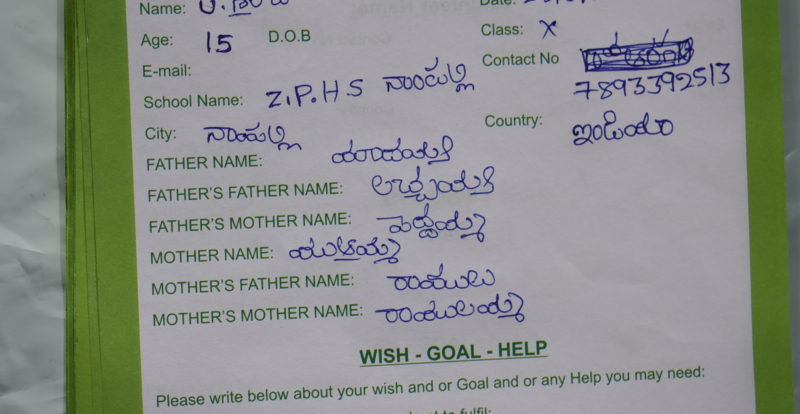 Name:
Date:
Age: 15 D.O.B Class: X
E-mail: Contact No
7893392513
School Name: Z.P.H.S నాంపల్లి
City: నాంపల్లి Country: ఇండియా
FATHER NAME: యాదయ్య
FATHER'S FATHER NAME: లచ్చయ్య
FATHER'S MOTHER NAME: పెద్దమ్మ
MOTHER NAME:
MOTHER'S FATHER NAME: రాములు
MOTHER'S MOTHER NAME: రాములమ్మ
WISH - GOAL - HELP
Please write below about your wish and or Goal and or any Help you may need: